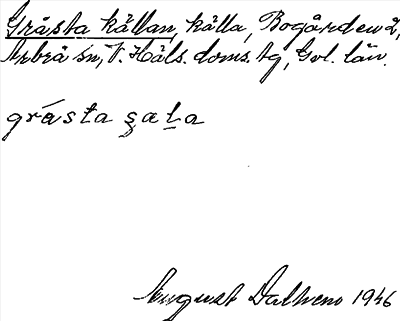 Gråsta källan, källa, Bogården 2,
Arbrå sn, V. Häls. doms. tg, Gvl. län.
grásta ʂaḻa
August Dalhem 1946